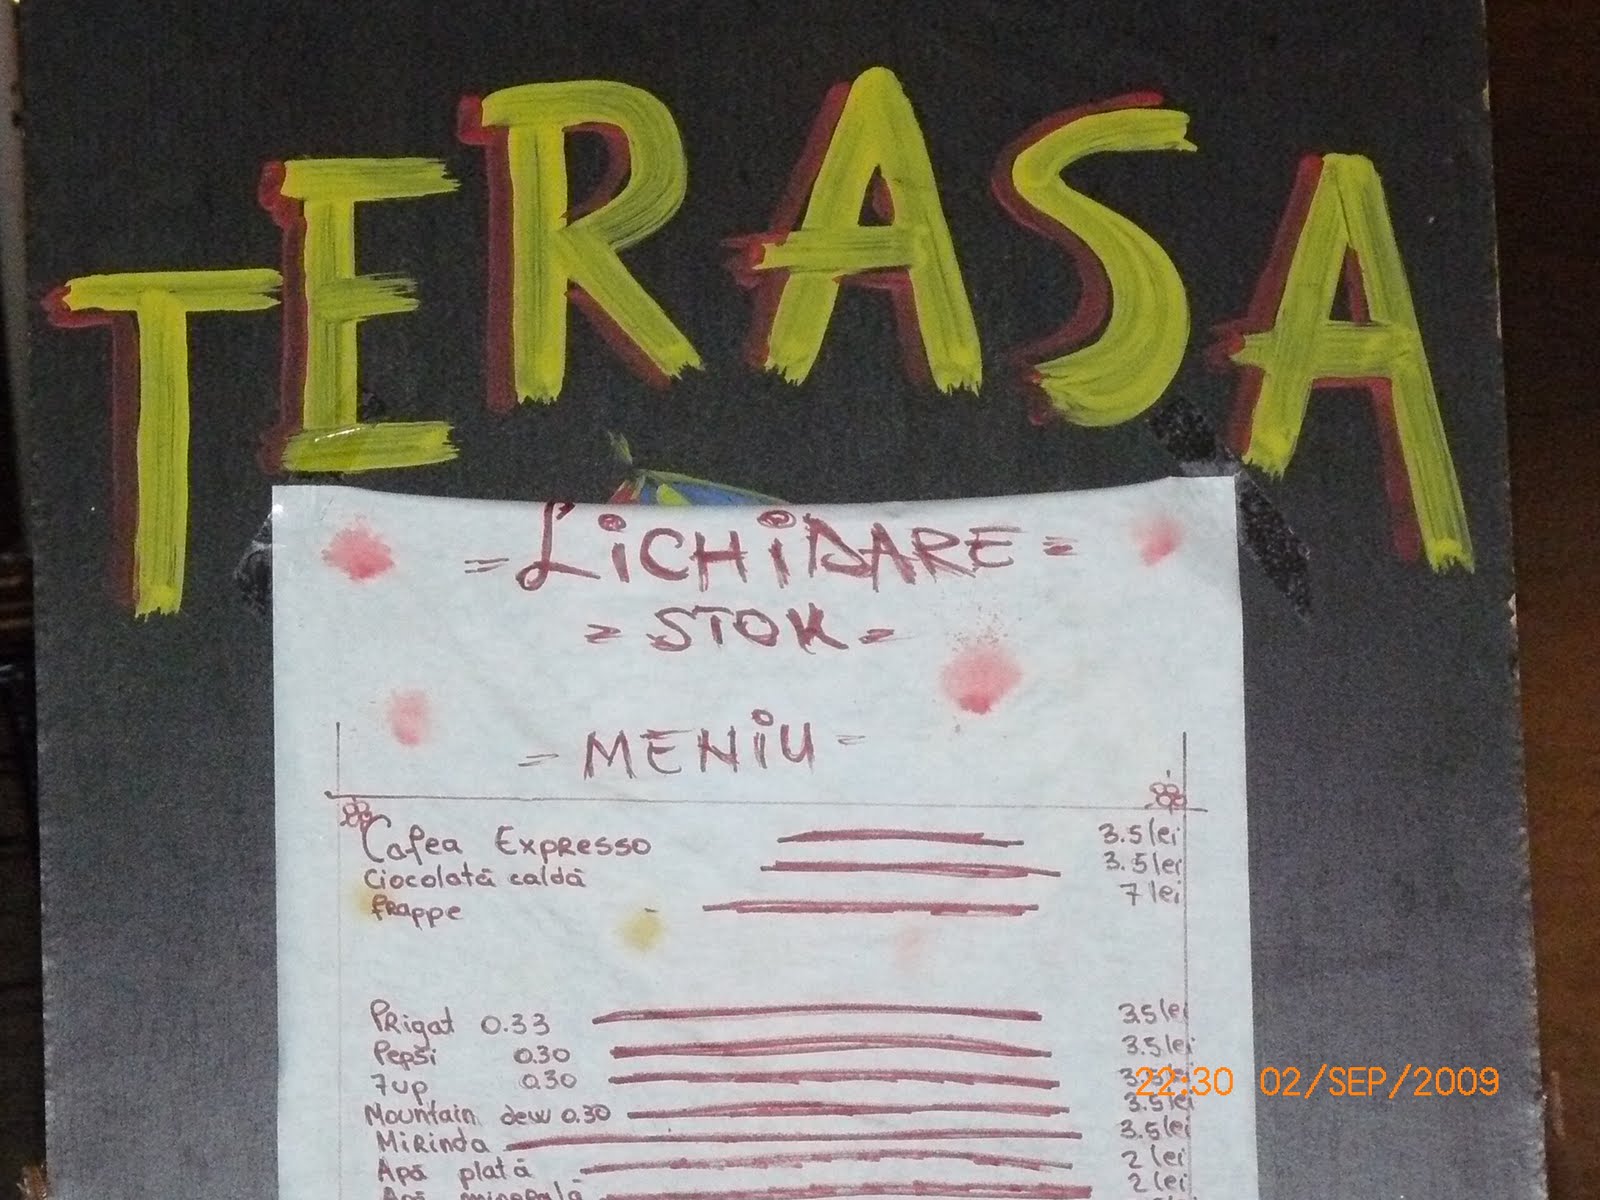 TERASA
= LiCHiDARE =
= STOK =
= MENiU =
Cafea Expresso 3.5 lei
Ciocolată caldă 3.5 lei
frappe 7 lei
PRigat 0.33 3.5 lei
Pepsi 0.30 3.5 lei
7up 0.30
Mountain dew 0.30 3.5 lei
MiRinda 3.5 lei
Apă plată 2 lei
Apă minerală 2 lei
22:30 02/SEP/2009